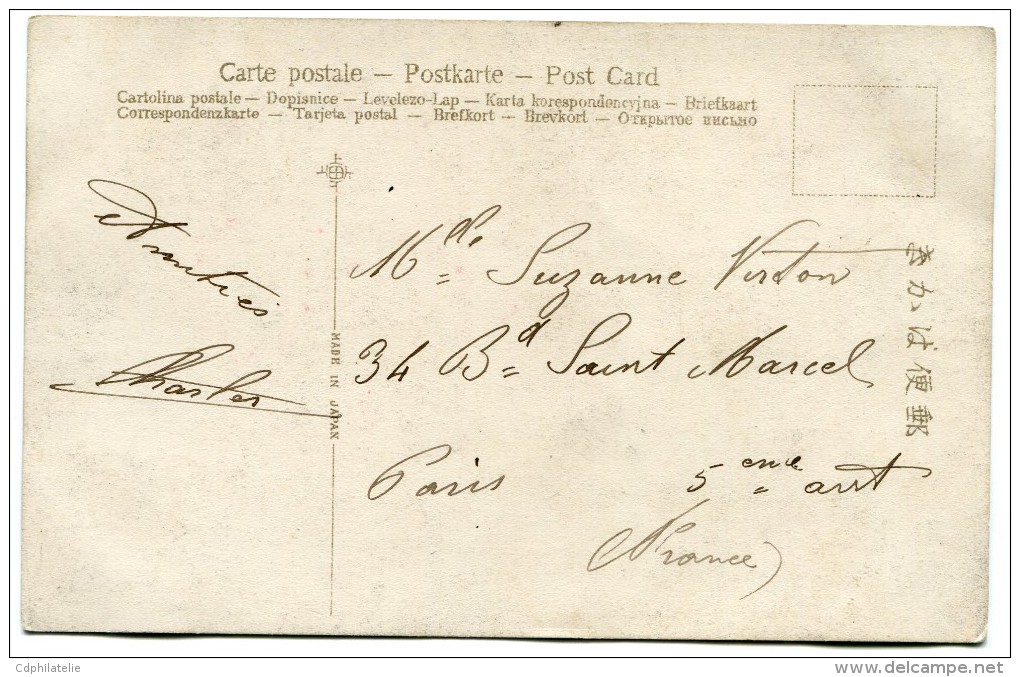 Carte postale — Postkarte — Post Card
Cartolina postale — Dopisnice — Levelezo-Lap — Karta korespondencyjna — Briefkaart
Correspondenzkarte — Tarjeta postal — Brefkort — Brevkort — Открытое письмо
Amitiés
Charles
MADE IN JAPAN
Mdlle Suzanne Virton
34 Bd Saint Marcel
Paris 5eme arrt
(France)
きかは便郵
Cdphilatelie
www.delcampe.net